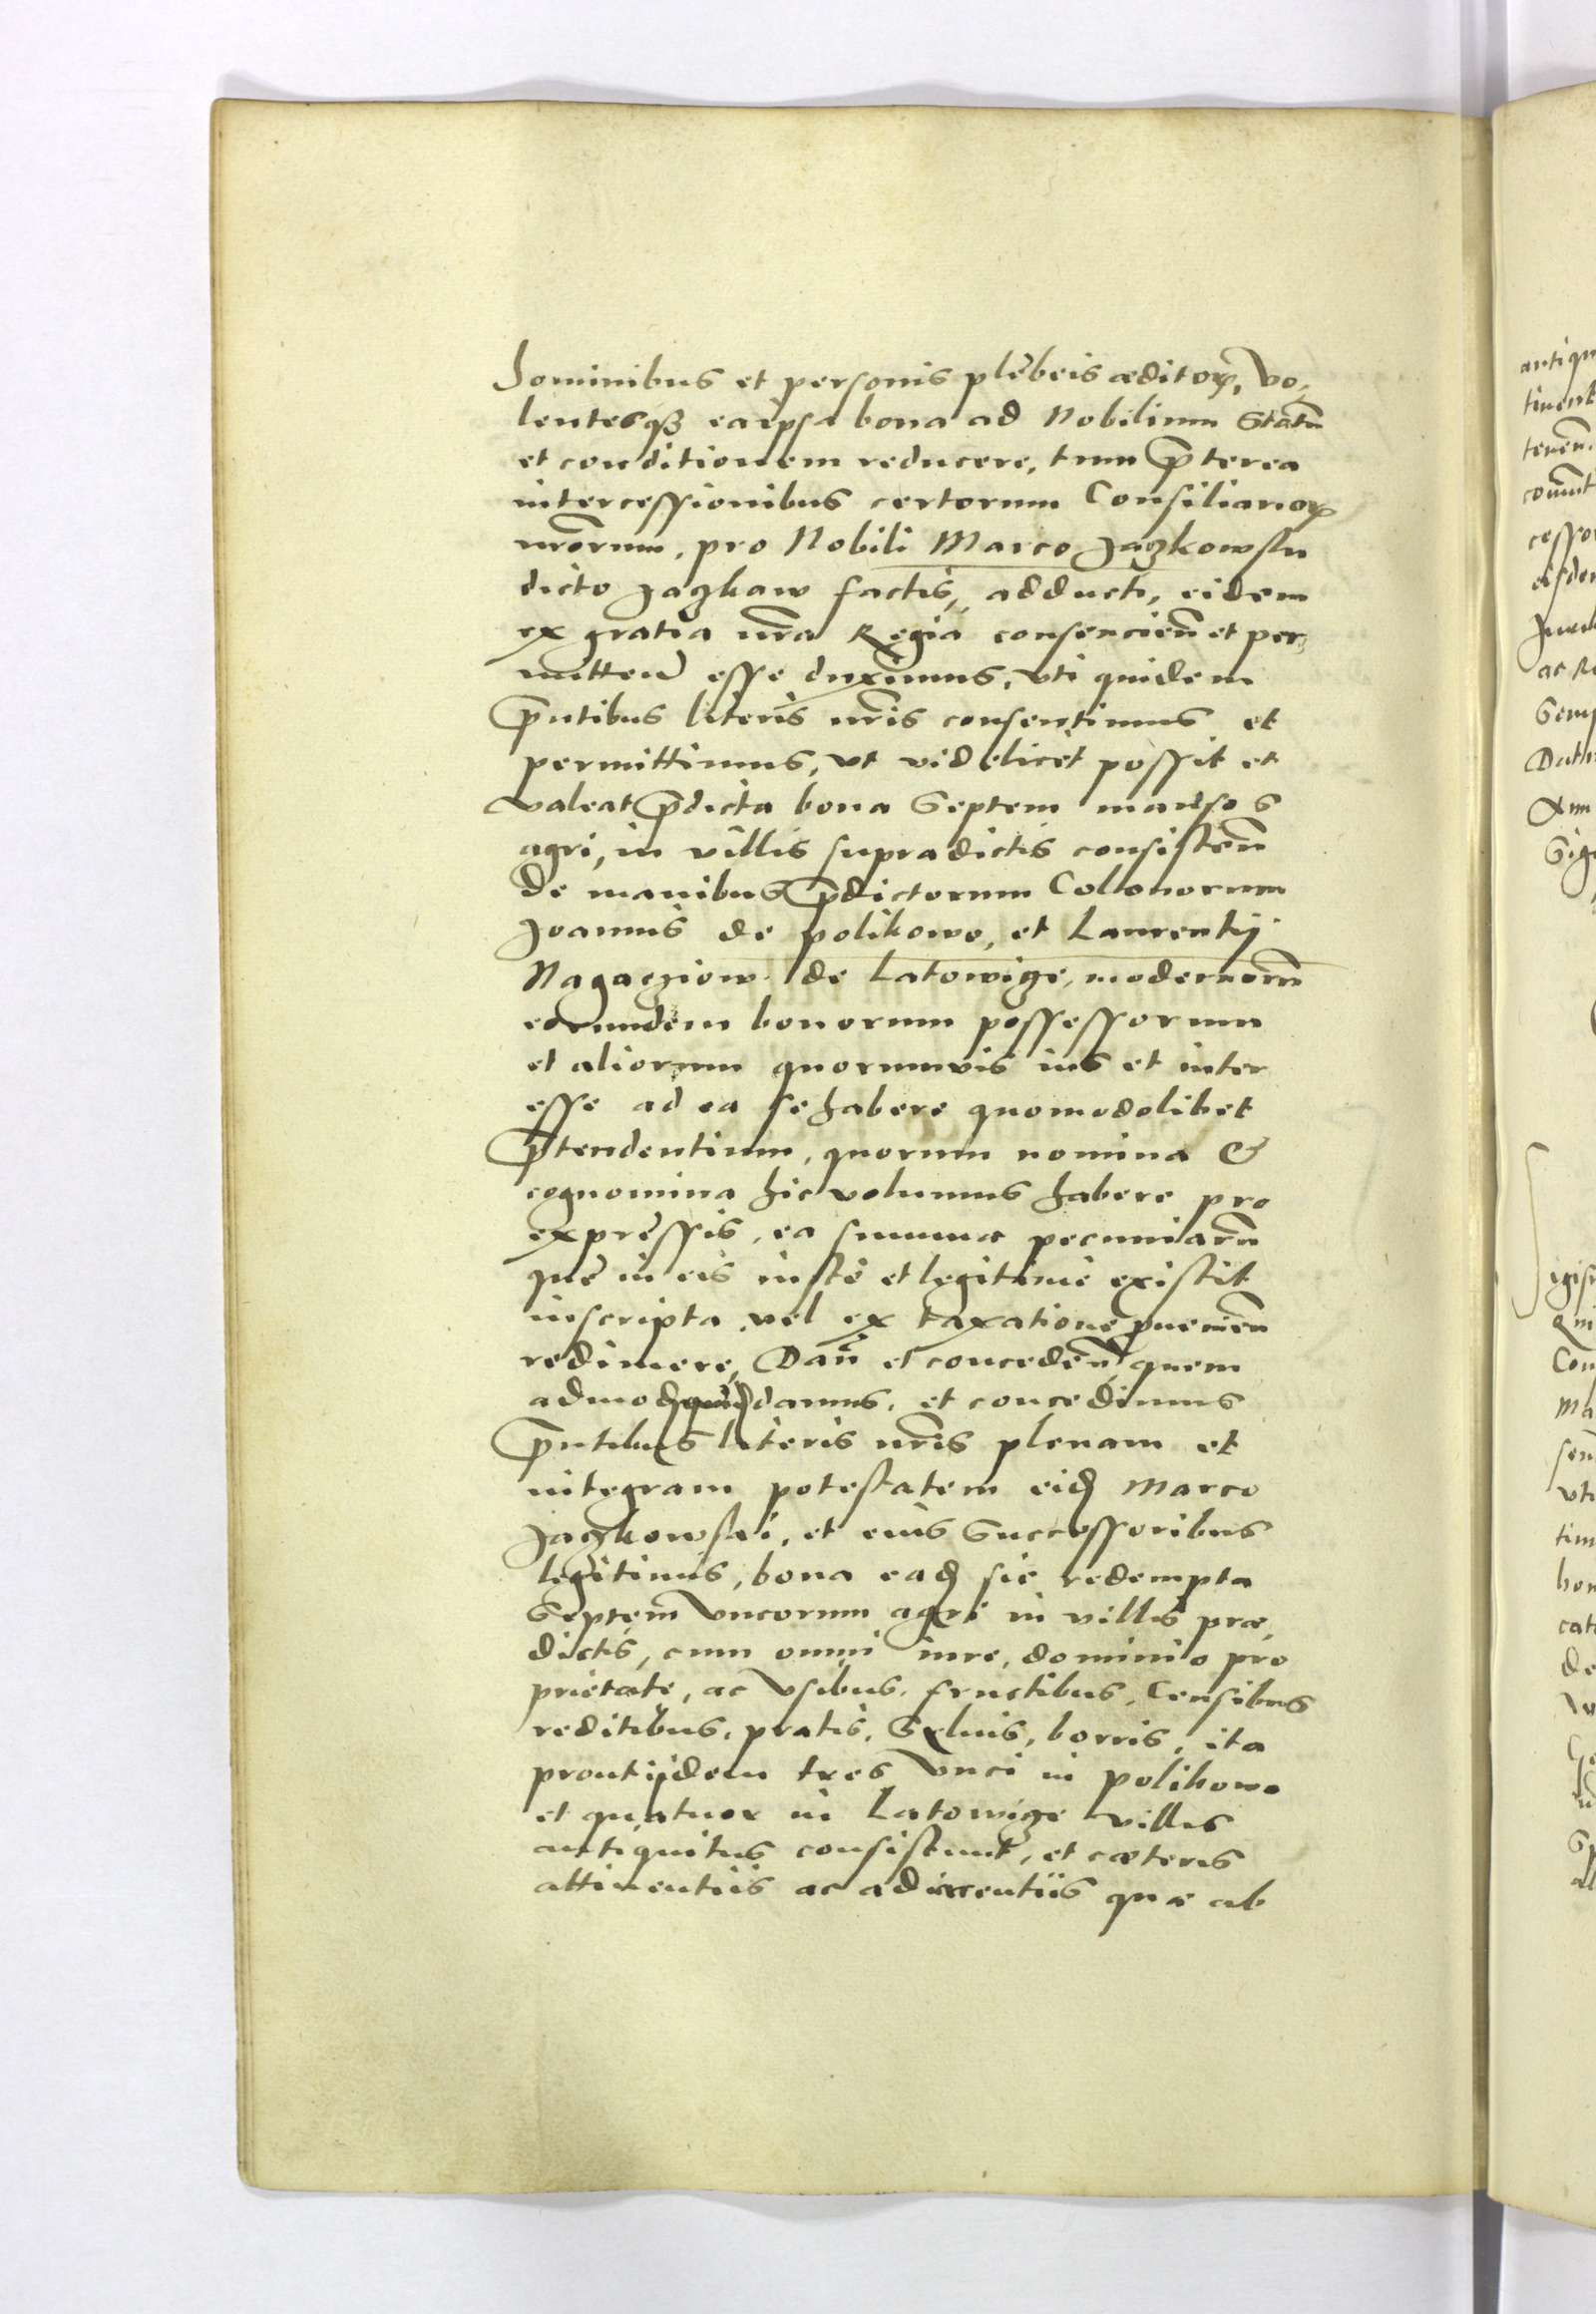 hominibus et personis plebeis æditorꝝ, vo,
lentesqꝫ ea ipsa bona ad Nobilium Statū
et conditionem reducere, tum p̄terea
intercessionibus certorum Consiliariorꝝ
nr̄orum, pro Nobili Marco Jaɡzkowski
dicto Jaɡzkaw factis, adducti, eidem
ex gratia nr̄a Regia consencien̄ et per,
mitten̄ esse duximus, vti quidem
p̄ntibus literis nr̄is consentimus et
permittimus, vt videlicet possit et
valeat p̄dicta bona Septem mansos
agri, in villis supradictis consisten̄
de manibus p̄dictorum Colonorum
Joannis de polikowo, et Laurentij
Nagacziow de Latowige, modernorū
eorundem bonorum possessorum
et aliorum quorumvis ius et inter
esse ad ea se habere quomodolibet
p̄tendentium, quorum nomina &
cognomina hic volumus habere pro
expressis, ea summa pecuniarū
que in eis iuste et legitime existit
inscripta vel ex taxatione pueniēn
redimere, Dan̄ et conceden̄, quem
admod damus, et concedimus
p̄ntibus literis nr̄is plenam et
integram potestatem eid Marco
Jaɡzkowski, et eius Successoribus
legitimis, bona ead sic redempta
Septem vncorum agri in villis præ,
dictis, cum omni iure, dominio pro
prietate, ac vsibus, fructibus, Censibus
reditibus, pratis, Syluis, borris, ita
prout ijdem tres vnci in polikowo
et quatuor in Latowige villis
antiquitus consistunt, et cæteris
attinentiis ac adiacentiis quæ ab
antiqu
tinent
teneñ.
com̄it
cessor
Semp
Datū
Con
Ma
vti
tim
bon
cat
de